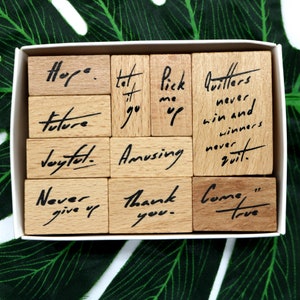 Hope.
future
Joyful.
Never
give up
Let
it
go
Pick
me
up
Amusing
Thank
you.
Quitters
never
win and
winners
never
quit.
Come
true